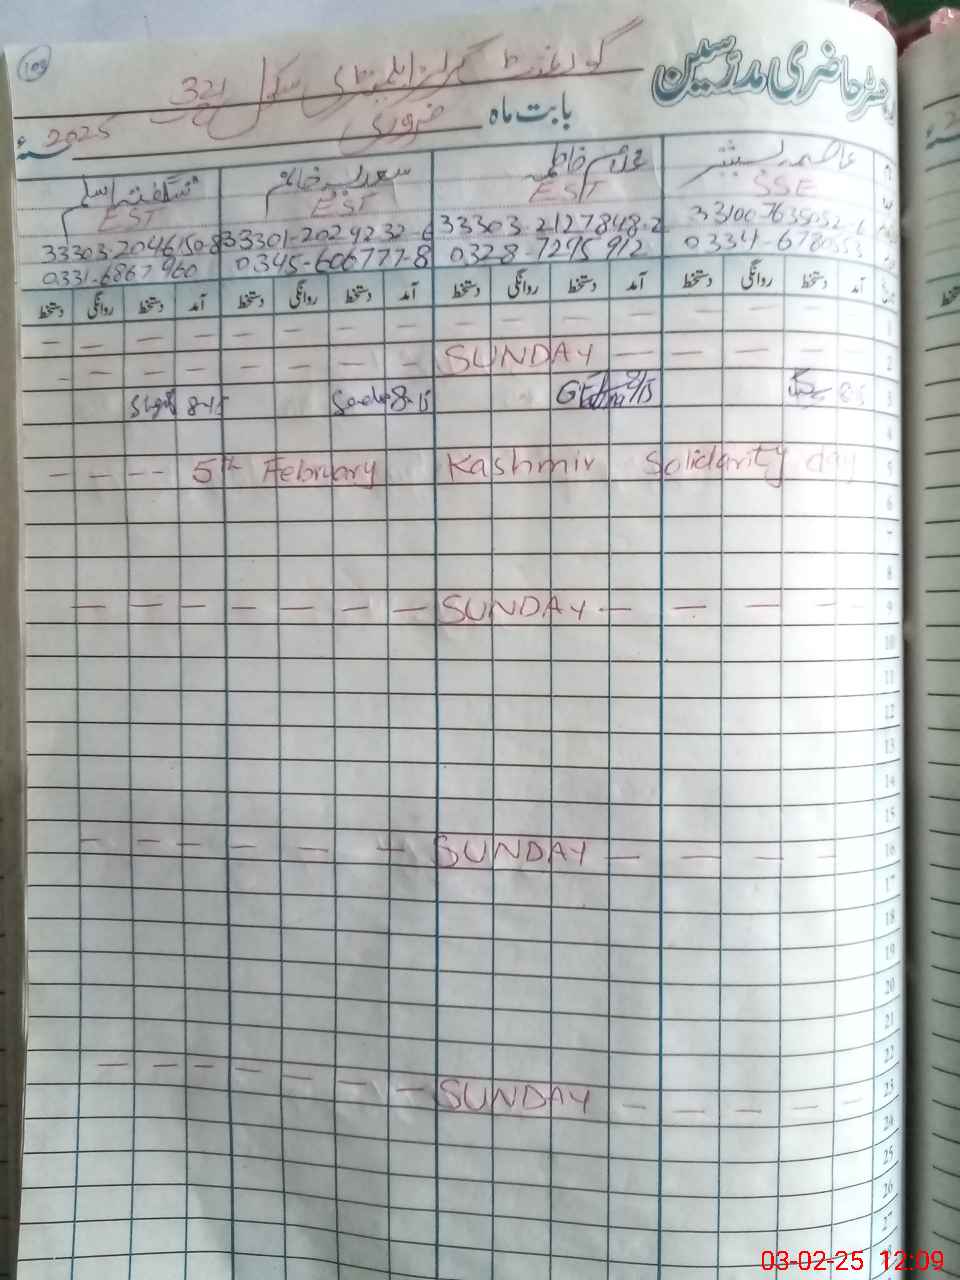 رجسٹر حاضری مدرسین
گورنمنٹ گرلز ایلیمنٹری سکول
بابت ماہ فروری 2025
عاصمہ بشیر
سعدیہ خانم
شگفتہ اسلم
SSE EST EST EST
33303-2127848-2
33301-2029232-6
33303-2046150-8
0328-7295912
0345-6067778
0331-6867960
آمد دستخط روانگی دستخط آمد دستخط روانگی دستخط آمد دستخط روانگی دستخط آمد دستخط روانگی دستخط
1
SUNDAY 2
8-15 8-15 3
4
5th February Kashmir Solidarity day 5
6
7
8
SUNDAY 9
10
11
12
13
14
15
SUNDAY 16
17
18
19
20
21
22
SUNDAY 23
24
25
26
27
03-02-25 12:09